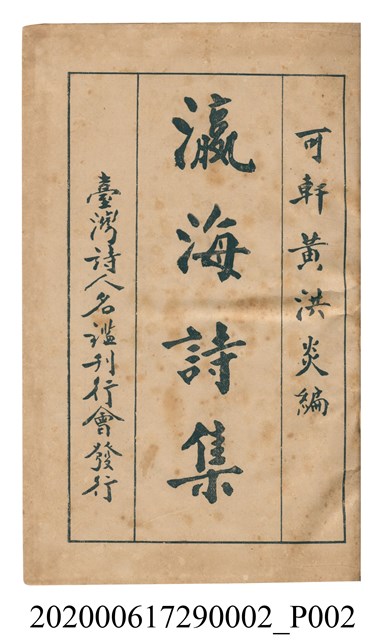 可軒黃洪炎編
瀛海詩集
臺灣詩人名鑑刊行會發行
202000617290002_P002